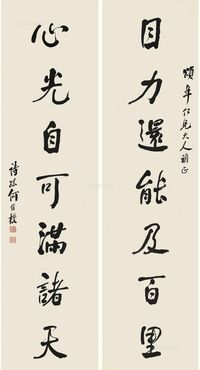 頌年仁兄大人雅正
目力還能及百里
心光自可滿諸天
詩孫何維樸